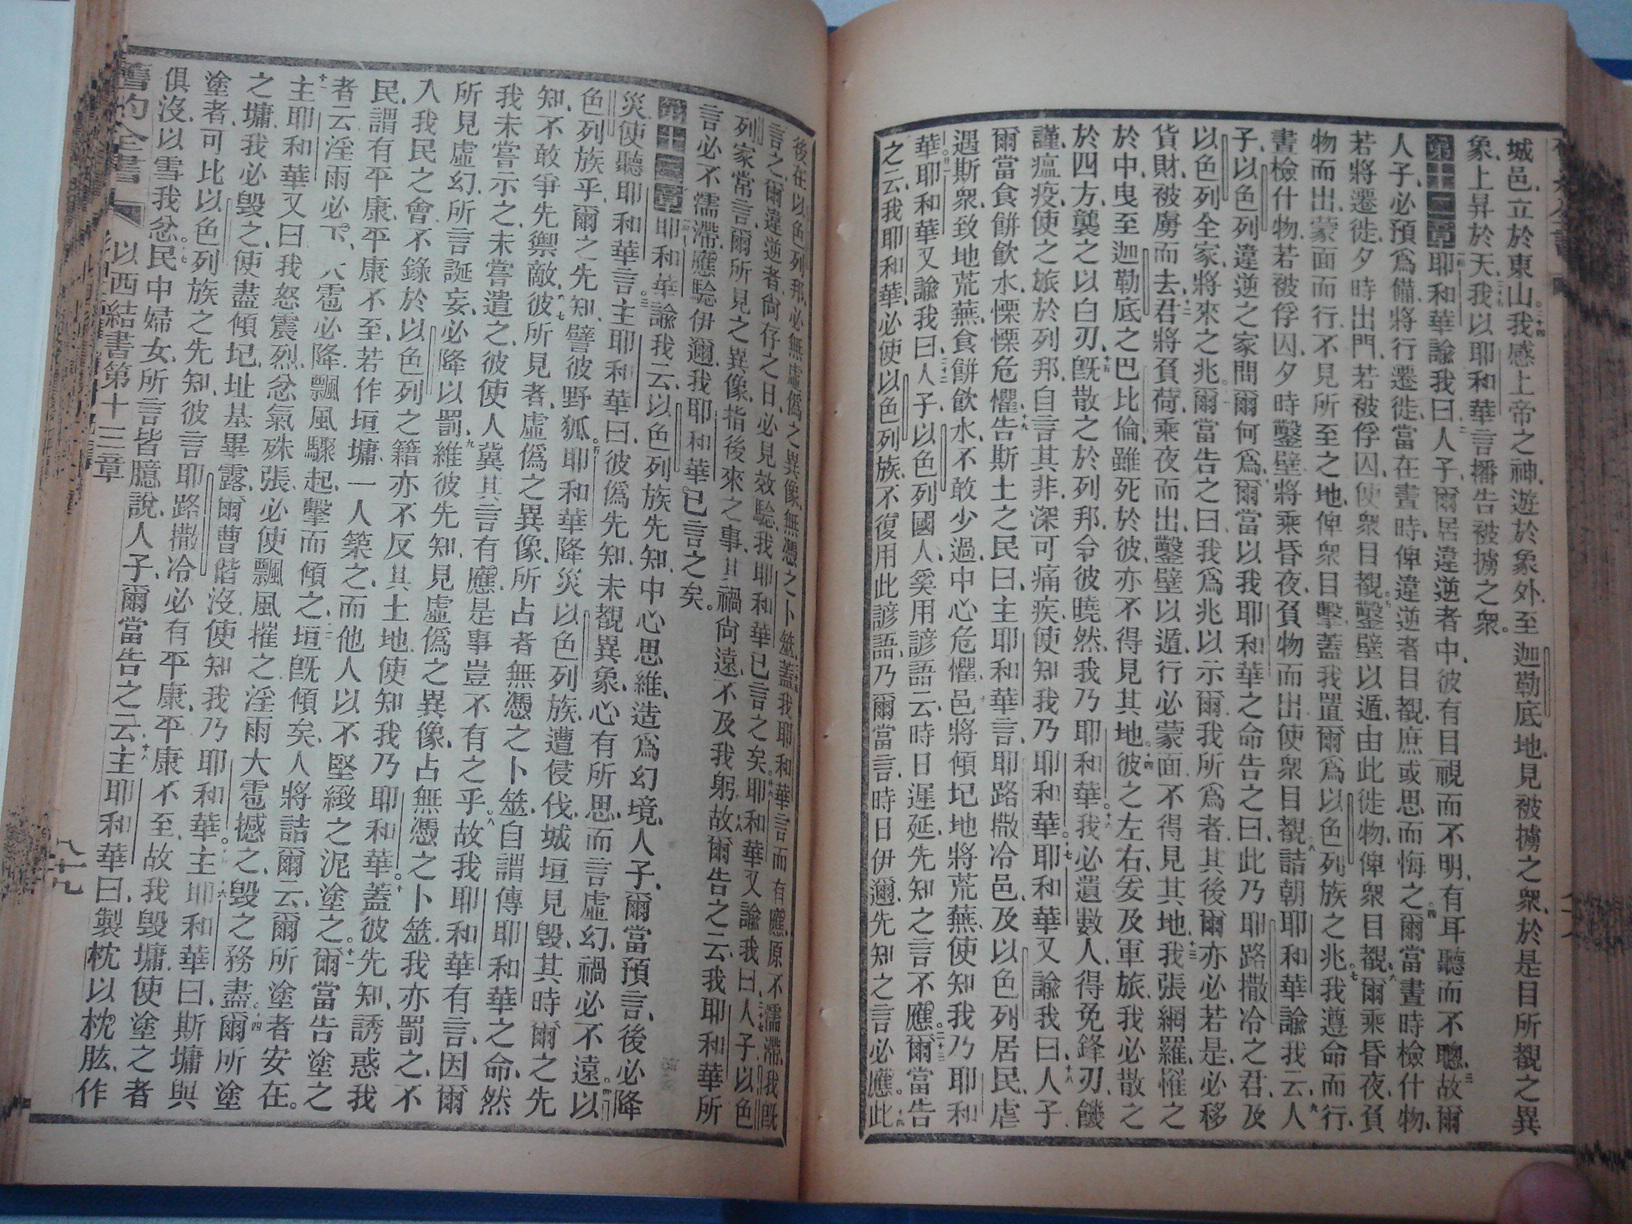 城邑、立於東山、我感上帝之神、遊於象外、至迦勒底地、見被擄之衆、於是目所覩之異
象、上昇於天、我以耶和華言、播告被擄之衆。
第十二章 耶和華諭我曰、人子、爾居違逆者中、彼有目視而不明、有耳聽而不聰、故爾
人子、必預爲備、將行遷徙、當在晝時、俾違逆者目覩、庶或思而悔之、爾當晝時、檢什物、
若將遷徙、夕時出門、若被俘囚、使衆目覩、鑿壁以遁、由此徙物、俾衆目覩、爾乘昏夜、負
物而出、蒙面而行、不見所至之地、俾衆目擊、蓋我置爾爲以色列族之兆、我遵命而行、
晝檢什物、若被俘囚、夕時鑿壁、將乘昏夜、負物而出、使衆目覩、詰朝耶和華諭我云、人
子、以色列違逆之家問爾何爲、爾當以我耶和華之命告之曰、此乃耶路撒冷之君、及
以色列全家、將來之兆、爾當告之曰、我爲兆以示爾、我所爲者、其後爾亦必若是、必移
貨財、被虜而去、君將負荷、乘夜而出、鑿壁以遁、行必蒙面、不得見其地、我張網羅、罹之
於中、曳至迦勒底之巴比倫、雖死於彼、亦不得見其地、彼之左右、爰及軍旅、我必散之
於四方、襲之以白刃、旣散之於列邦、令彼曉然、我乃耶和華、我必遺數人、得免鋒刃、饑
謹、瘟疫、使之旅於列邦、自言其非、深可痛疾、使知我乃耶和華、耶和華又諭我曰、人子
爾當食餅飲水、慄慄危懼、告斯土之民曰、主耶和華言、耶路撒冷邑、及以色列居民、虐
遇斯衆、致地荒蕪、食餅飲水、不敢少過、中心危懼、邑將傾圮、地將荒蕪、使知我乃耶和
華、耶和華又諭我曰、人子、以色列國人、奚用諺語云、時日遲延、先知之言不應、爾當告
之云、我耶和華、必使以色列族、不復用此諺語、乃爾當言、時日伊邇、先知之言必應、此
後在以色列邦、必無虛僞之異像、無憑之卜筮、蓋我耶和華言而有應、原不濡滯、我旣
言之、爾違逆者尙存之日、必見效驗、我耶和華已言之矣、耶和華又諭我曰、人子、以色
列家常言、爾所見之異像、指後來之事、其禍尙遠、不及我躬、故爾告之云、我耶和華所
言、必不濡滯、應驗伊邇、我耶和華已言之矣。
第十三章 耶和華諭我云、以色列族先知、中心思維、造爲幻境、人子、爾當預言、後必降
災、使聽耶和華言、主耶和華曰、彼僞先知、未覩異象、心有所思、而言虛幻、禍必不遠、以
色列族乎、爾之先知、譬彼野狐、耶和華降災、以色列族、遭侵伐、城垣見毀、其時爾之先
知、不敢爭先禦敵、彼所見者、虛僞之異像、所占者、無憑之卜筮、自謂傳耶和華之命、然
我未嘗示之、未嘗遣之、彼使人冀其言有應、是事豈不有之乎、故我耶和華有言、因爾
所見虛幻、所言誕妄、必降以罰、維彼先知、見虛僞之異像、占無憑之卜筮、我亦罰之、不
入我民之會、不錄於以色列之籍、亦不反其土地、使知我乃耶和華、蓋彼先知、誘惑我
民、謂有平康、平康不至、若作垣墉、一人築之、而他人以不堅緻之泥塗之、爾當告塗之
者云、淫雨必下、大雹必降、飄風驟起、擊而傾之、垣旣傾矣、人將詰爾云、爾所塗者安在、
主耶和華又曰、我怒震烈、忿氣殊張、必使飄風摧之、淫雨大雹撼之、毀之務盡、爾所塗
之墉、我必毀之、使盡傾圮、址基畢露、爾曹偕沒、使知我乃耶和華、主耶和華曰、斯墉與
塗者、可比以色列族之先知、彼言耶路撒冷必有平康、平康不至、故我毀墉、使塗之者
俱沒、以雪我忿、民中婦女、所言皆臆說、人子、爾當告之云、主耶和華曰、製枕以枕肱、作
舊約全書 以西結書第十三章 八十九